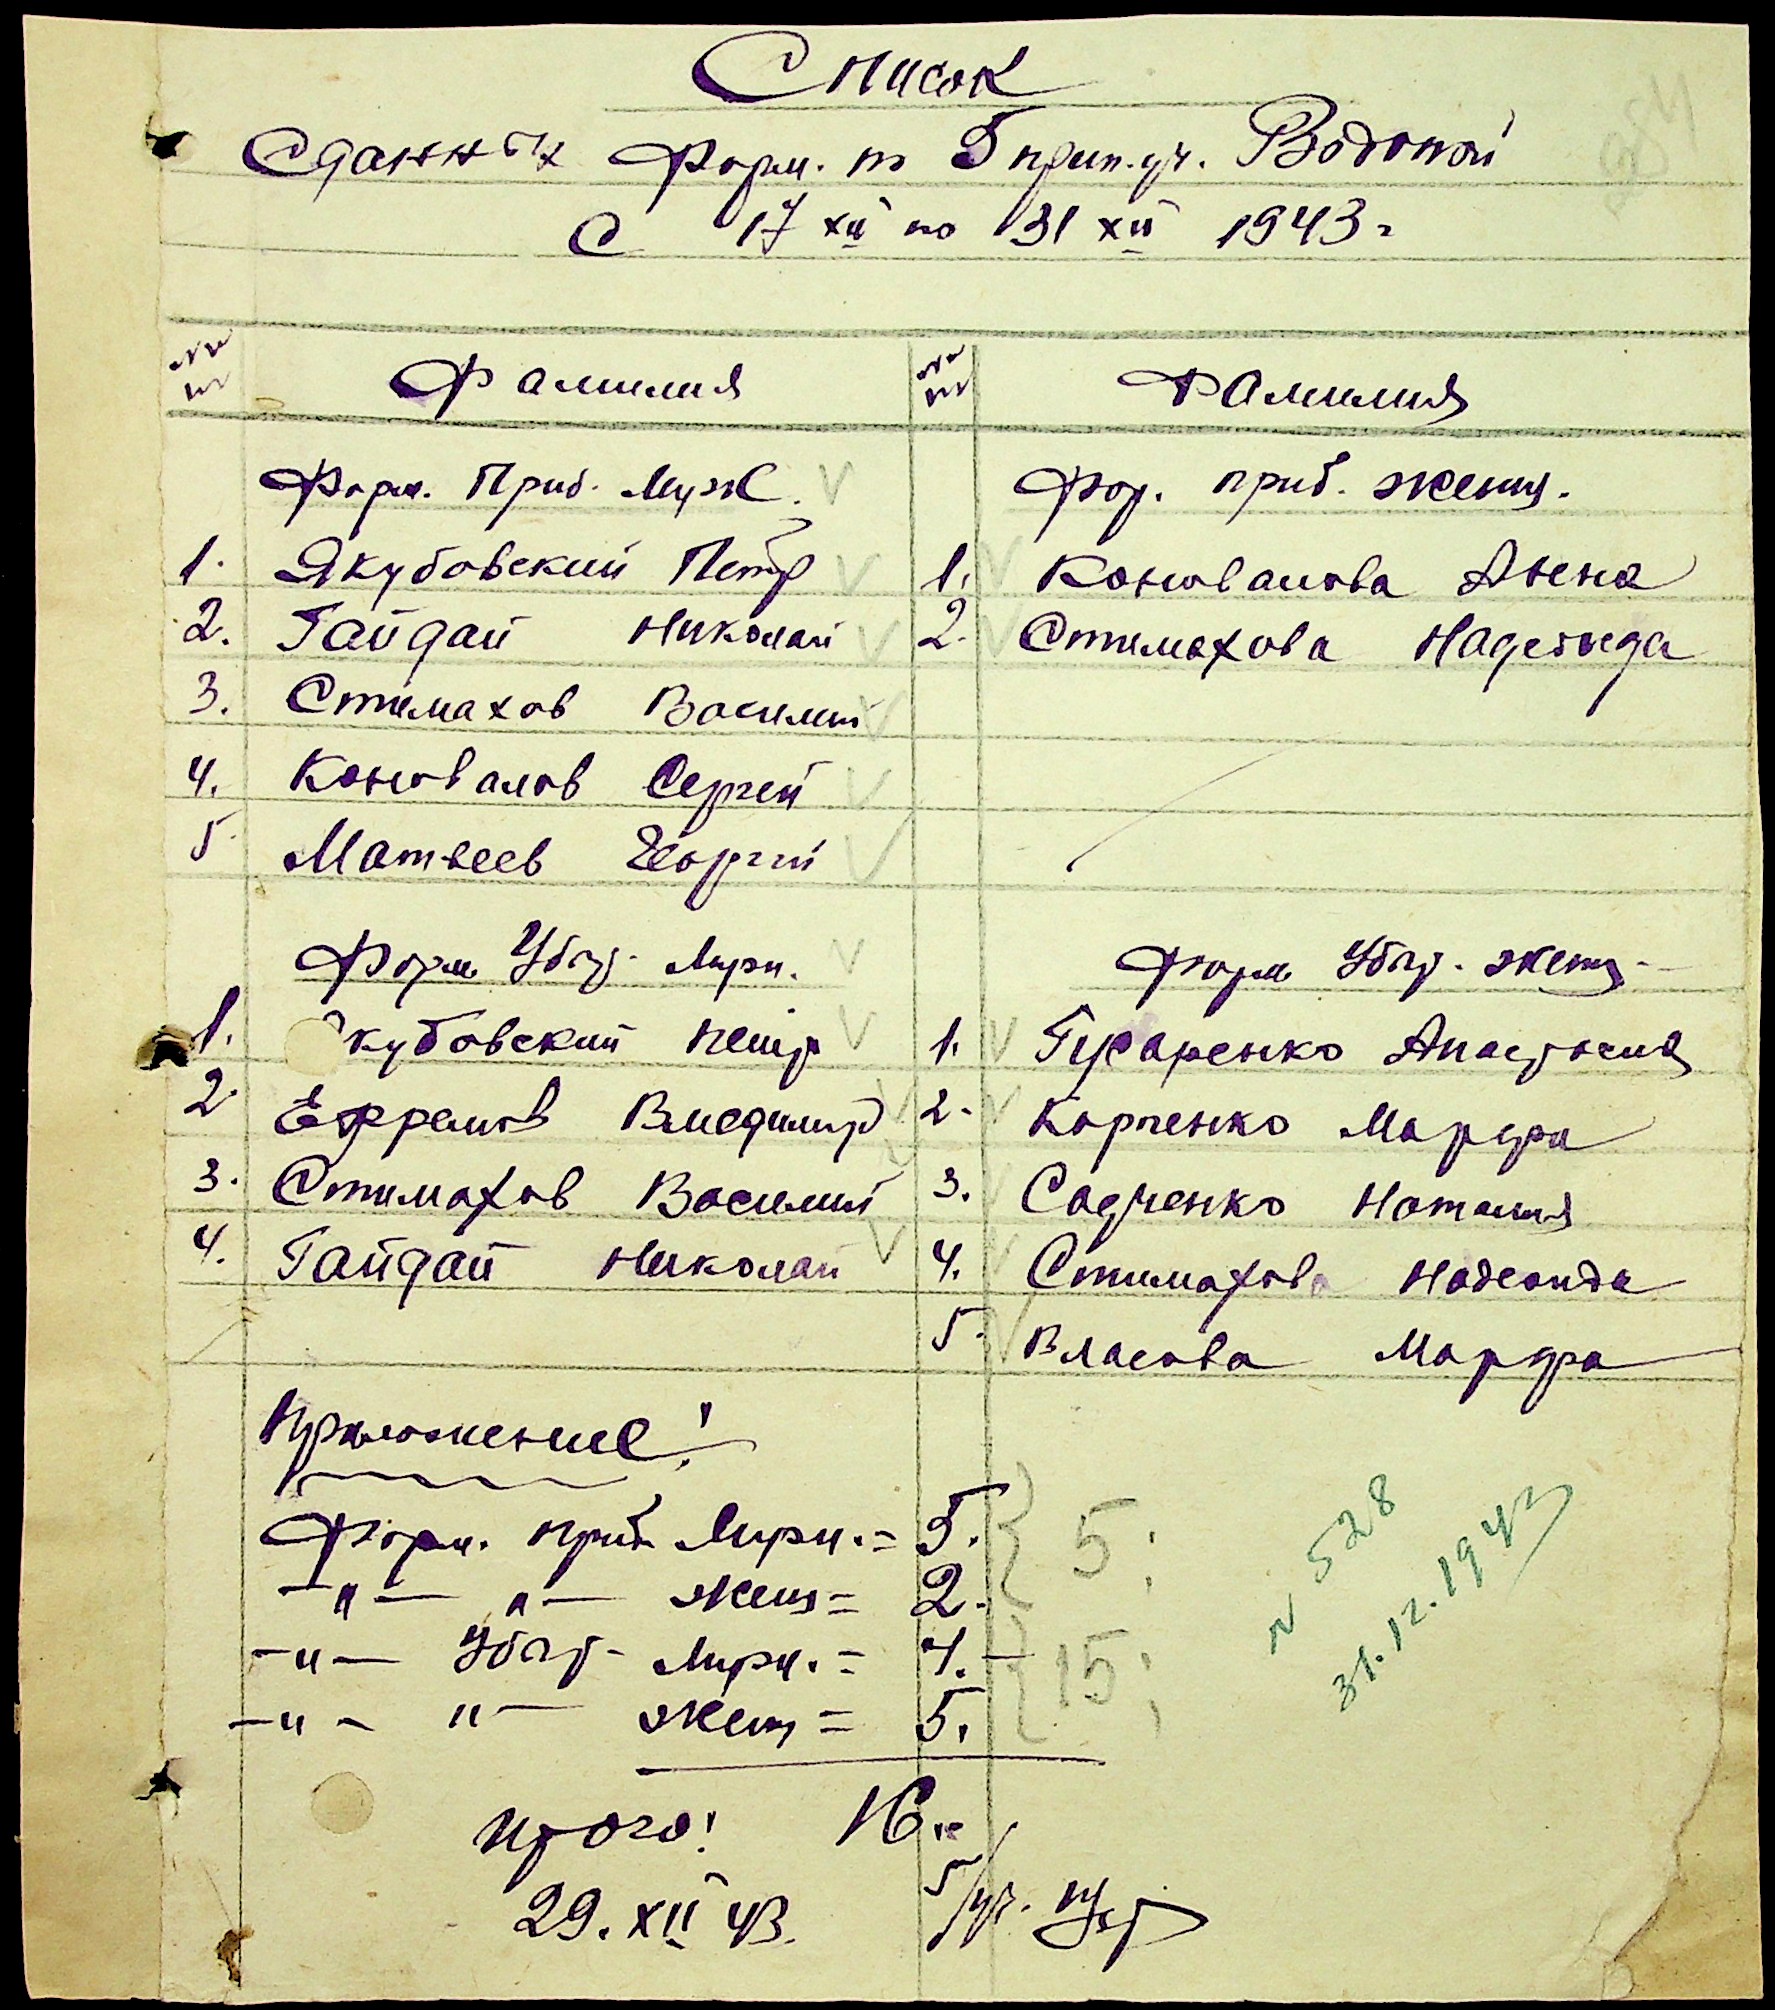 Список
Сданных форм. по 5 прип. уч. Водопой
С 17 XII по 31 XII 1943 г
№№ пп Фамилия №№ пп Фамилия
Форм. Приб. Муж. Фор. приб. женщ.
1. Якубовский Петр 1. Коновалова Анна
2. Гайдай Николай 2. Стимахова Надежда
3. Стимахов Василий
4. Коновалов Сергей
5. Матвеев Георгий
Форм Убыт. Мужч. Форм Убыт. женщ.
1. кубовский Петр 1. Гусаренко Анастасия
2. Ефремов Владимир 2. Карпенко Марфа
3. Стимахов Василий 3. Садченко Наталия
4. Гайдай Николай 4. Стимахова Надежда
5. Власова Марфа
Приложение!
Форм. приб. Мужч. = 5. 5;
-"- "- женщ = 2.
-"- Убыт- Мужч. = 4. 15;
-"- "- женщ = 5.
Итого! 16.
29. XII 43. 5/уч.
N 528
31.12.1943